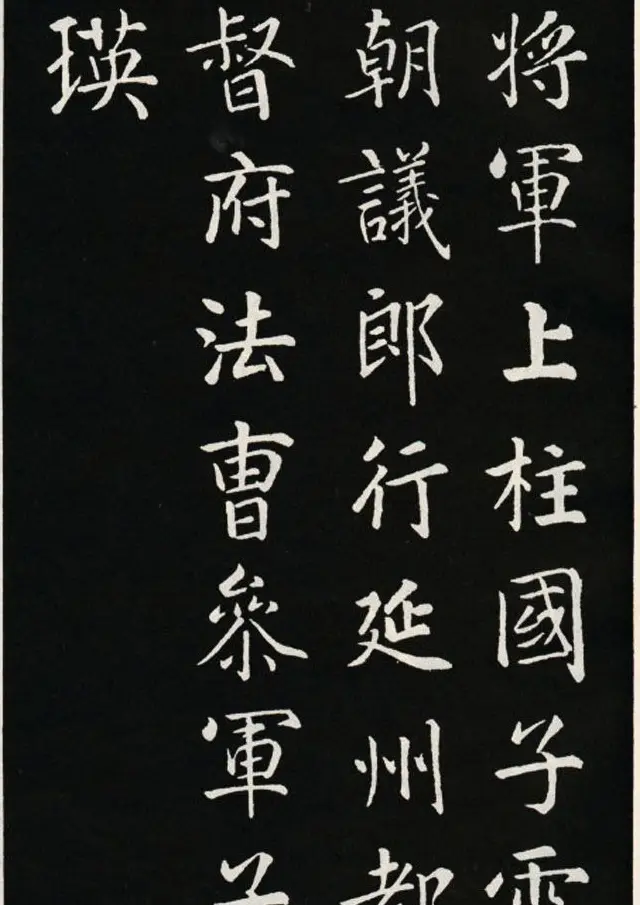 將軍上柱國子
朝議郎行延州都
督府法曹參軍子
瑛